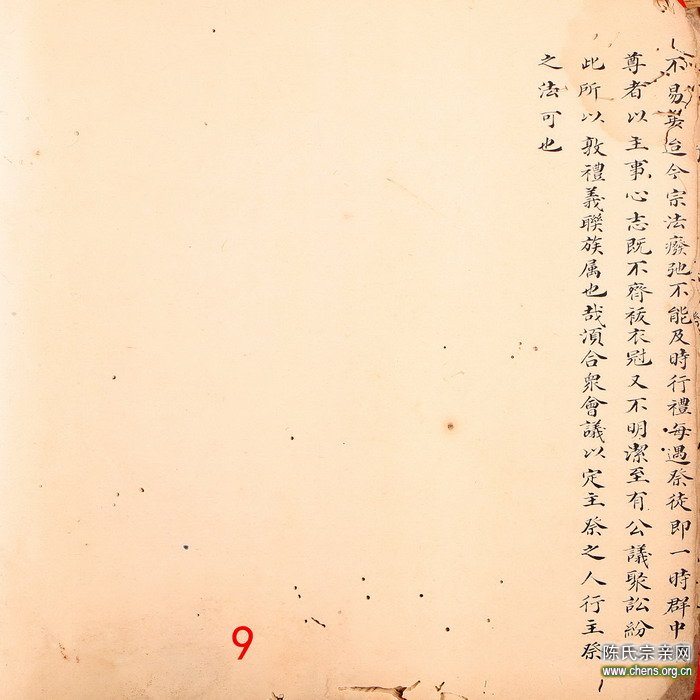 不易矣迨今宗法廢弛不能及時行禮每遇祭徒即一時群中
尊者以主事心志既不齊袚衣冠又不明潔至有公議聚訟紛
此所以敦禮義聯族属也哉須合衆會議以定主祭之人行主祭
之法可也
9
陈氏宗亲网
www.chens.org.cn